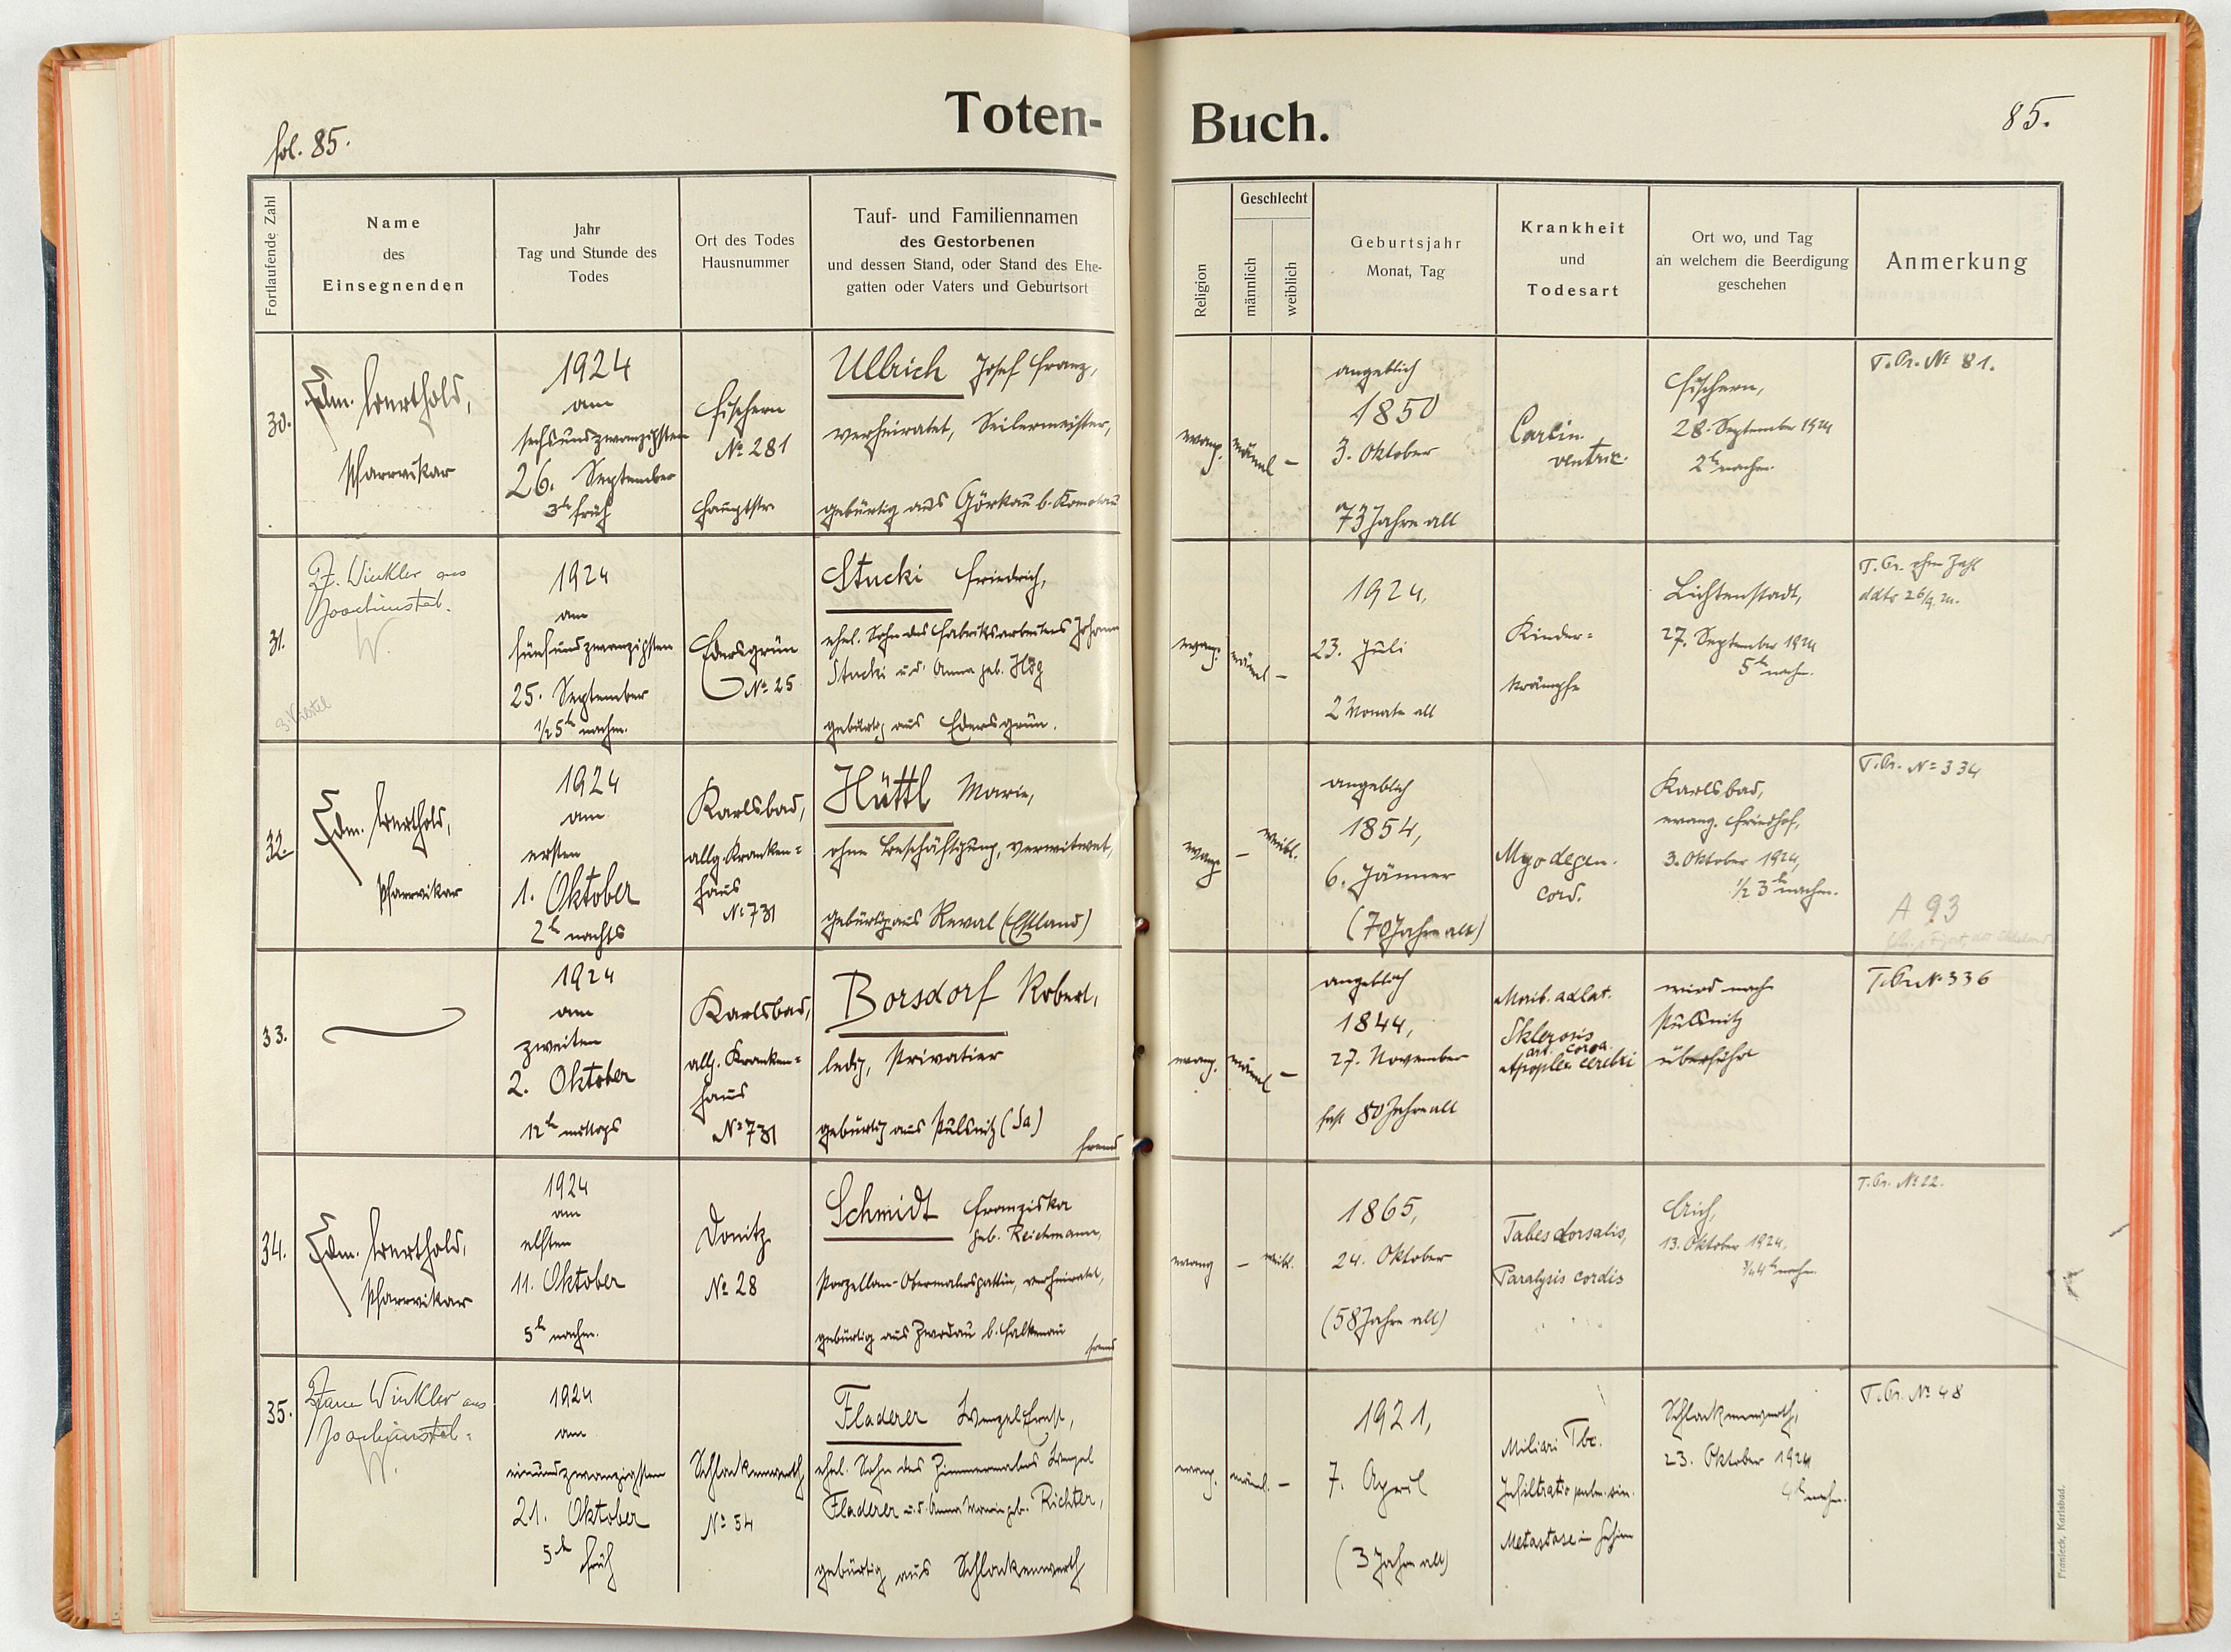 Toten-
Buch.
fol. 85.
85.
Fortlaufende Zahl
Name
des
Einsegnenden
Jahr
Tag und Stunde des
Todes
Ort des Todes
Hausnummer
Tauf- und Familiennamen
des Gestorbenen
und dessen Stand, oder Stand des Ehe-
gatten oder Vaters und Geburtsort
Religion
Geschlecht
männlich
weiblich
Geburtsjahr
Monat, Tag
Krankheit
und
Todesart
Ort wo, und Tag
an welchem die Beerdigung
geschehen
Anmerkung
30.
Edm. Berthold,
Pfarrvikar
1924
am
sechsundzwanzigsten
26. September
3h früh
Fischern
No 281
Hauptstr.
Ullrich Josef Franz,
verheiratet, Seilermeister,
gebürtig aus Görkau b. Komotau
evang.
männl –
angeblich
1850
3. Oktober
73 Jahre alt
Carcin.
ventric.
Fischern,
28. September 1924
2h nachm.
T.Br. No 81.
31.
Pf. Winkler aus
Joachimstal.
W.
3. Viertel
1924
am
fünfundzwanzigsten
25. September
1/2 5h nachm.
Edersgrün
No 25
Stucki Friedrich,
ehel. Sohn des Fabriksarbeiters Johann
Stucki u.d. Anna geb.
gebürtig aus Edersgrün.
evang.
männl –
1924,
23. Juli
2 Monate alt
Kinder=
krämpfe
Lichtenstadt,
27. September 1924
5h nachm.
T.Br. ohne Zahl
ddto 26/9. 24.
32.
Edm. Berthold,
Pfarrvikar
1924
am
ersten
1. Oktober
2h nachts
Karlsbad,
allg. Kranken=
haus
No 731
Hüttl Marie,
ohne Beschäftigung, verwitwet,
gebürtig aus Reval (Estland)
evang
– weibl.
angeblich
1854,
6. Jänner
(70 Jahre alt)
Myodegen.
cord.
Karlsbad,
evang. Friedhof,
3. Oktober 1924,
1/2 3h nachm.
T.Br. No 334
A 93
33.
1924
am
zweiten
2. Oktober
12h mittags
Karlsbad,
allg. Kranken=
haus
No 731
Borsdorf Robert,
ledig, Privatier
gebürtig aus Pulsnitz (Sa)
fremd
evang.
männl –
angeblich
1844,
27. November
fast 80 Jahre alt
Morib. adlat.
Sklerosis
art. coron.
Apoplex. cerebri
wird nach
Pulsnitz
überführt
T.Br. No 336
34.
Edm. Berthold,
Pfarrvikar
1924
am
elften
11. Oktober
5h nachm.
Donitz
No 28
Schmidt Franziska
geb. Reichmann,
Porzellan-Obermalersgattin, verheiratet,
gebürtig aus Zwodau b. Falkenau
fremd
evang
– weibl.
1865,
24. Oktober
(58 Jahre alt)
Tabes dorsalis,
Paralysis cordis
Aich,
13. Oktober 1924,
3/4 4h nachm.
T.Br. No 22.
35.
Pfarrer Winkler aus
Joachimstal.
W.
1924
am
einundzwanzigsten
21. Oktober
5h früh
Schlackenwerth
No 54
Fladerer Wenzel Ernst,
ehel. Sohn des Zimmermalers Wenzel
Fladerer u.d. Anna Maria geb. Richter,
gebürtig aus Schlackenwerth
evang.
männl. –
1921,
7. April
(3 Jahre alt)
Miliari Tbc.
Infiltratio pulm. sin.
Metastase in Gehirn
Schlackenwerth,
23. Oktober 1924
4h nachm.
T.Br. No 48
Franieck, Karlsbad.